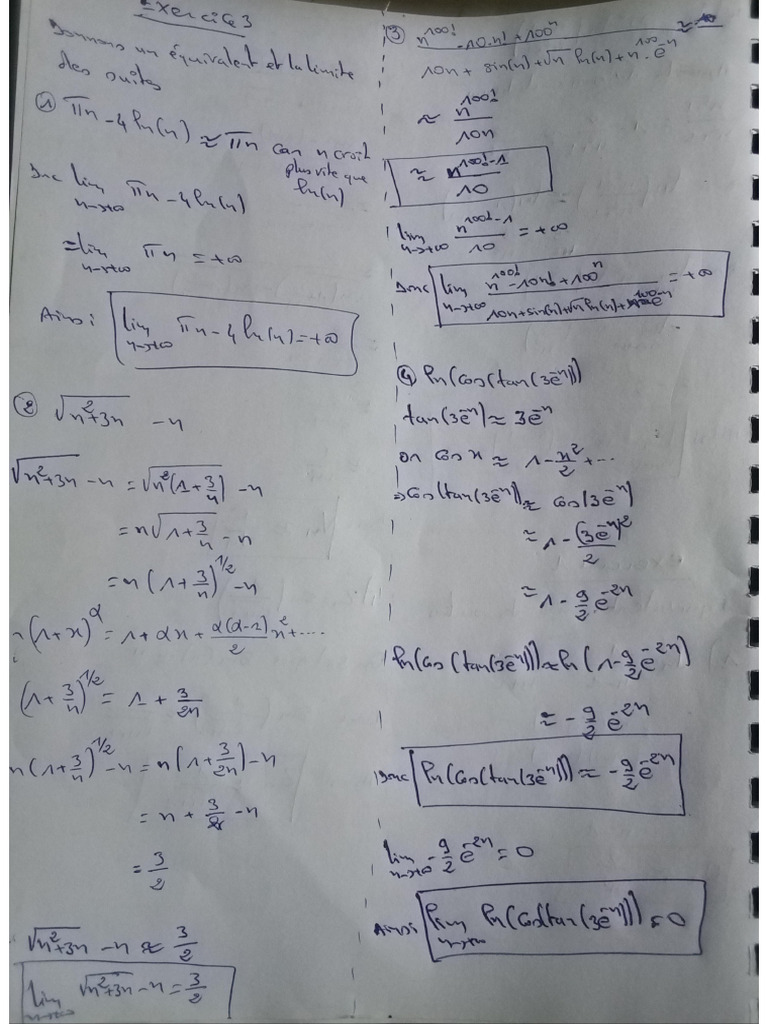 Exercice 3
Donnons un équivalent et la limite
des suites
① πn - 4 ln(n) ≈ πn car n croit
plus vite que
ln(n)
Donc lim πn - 4 ln(n)
n→+∞
= lim πn = +∞
n→+∞
Ainsi : lim πn - 4 ln(n) = +∞
n→+∞
② √(n²+3n) - n
√(n²+3n) - n = √(n²(1+3/n)) - n
= n√(1+3/n) - n
= n(1+3/n)^(1/2) - n
(1+x)^α = 1 + αx + α(α-1)/2 x² + ....
(1+3/n)^(1/2) = 1 + 3/2n
n(1+3/n)^(1/2) - n = n(1+3/2n) - n
= n + 3/2 - n
= 3/2
√(n²+3n) - n ≈ 3/2
lim √(n²+3n) - n = 3/2
n→+∞
③ n^100! - 10.n! + 100^n ≈
10n + sin(n) + √n ln(n) + n^100 . e^-n
≈ n^100! / 10n
≈ n^(100!-1) / 10
lim n^(100!-1) / 10 = +∞
n→+∞
Donc lim n^100! - 10n! + 100^n = +∞
n→+∞ 10n + sin(n) + √n ln(n) + e^-n
④ ln(cos(tan(3e^-n)))
tan(3e^-n) ≈ 3e^-n
or cos x ≈ 1 - x²/2 + ...
⇒ cos(tan(3e^-n)) ≈ cos(3e^-n)
≈ 1 - (3e^-n)²/2
≈ 1 - 9/2 e^-2n
ln(cos(tan(3e^-n))) ≈ ln(1 - 9/2 e^-2n)
≈ - 9/2 e^-2n
Donc ln(cos(tan(3e^-n))) ≈ - 9/2 e^-2n
lim - 9/2 e^-2n = 0
n→+∞
Ainsi lim ln(cos(tan(3e^-n))) = 0
n→+∞